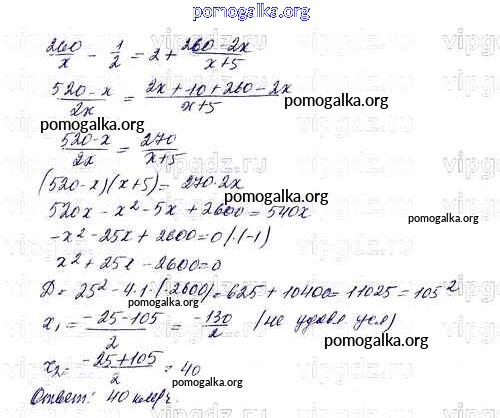 pomogalka.org
260/x - 1/2 = 2 + (260-2x)/(x+5)
(520-x)/2x = (2x+10+260-2x)/(x+5)
pomogalka.org
pomogalka.org
(520-x)/2x = 270/(x+5)
pomogalka.org
(520-x)(x+5) = 270·2x
pomogalka.org
520x - x² - 5x + 2600 = 540x
pomogalka.org
-x² - 25x + 2600 = 0 /·(-1)
pomogalka.org
x² + 25x - 2600 = 0
pomogalka.org
D = 25² - 4·1·(-2600) = 625 + 10400 = 11025 = 105²
pomogalka.org
x₁ = (-25-105)/2 = -130/2 (не удовл усл)
pomogalka.org
pomogalka.org
x₂ = (-25+105)/2 = 40
pomogalka.org
Ответ: 40 км/ч.
pomogalka.org